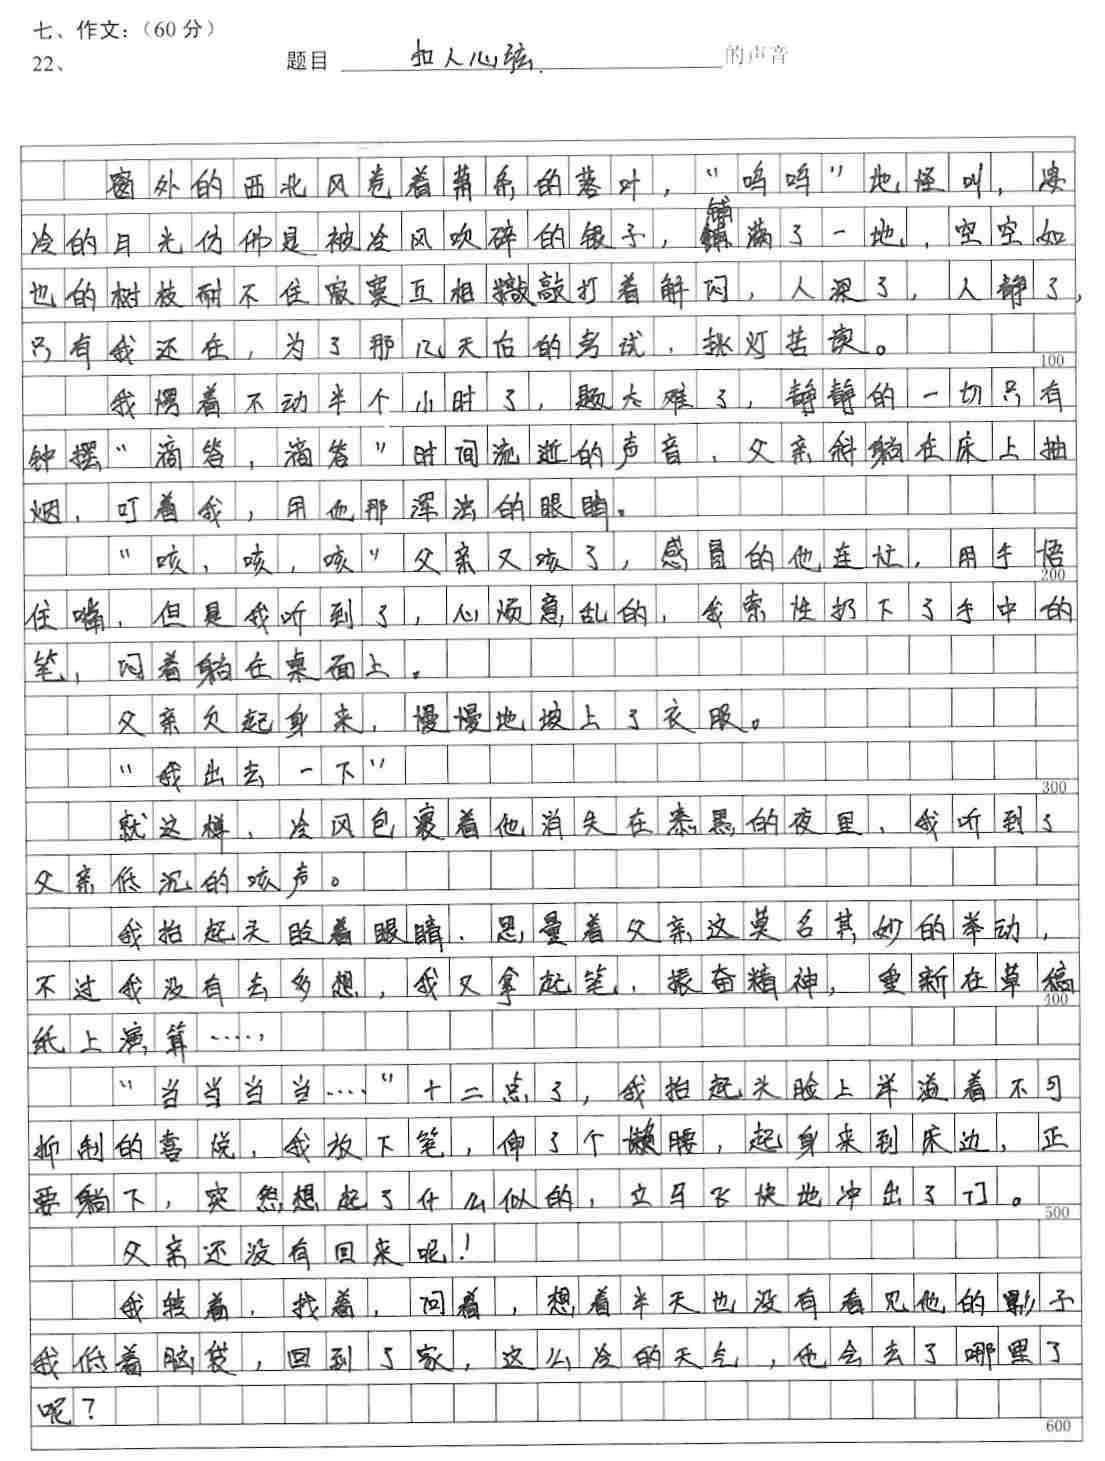 七、作文：（60 分）
22、 题目 扣人心弦 的声音
窗外的西北风卷着萧条的落叶，“呜呜”地怪叫，凄
冷的月光仿佛是被冷风吹碎的银子，铺满了一地，空空如
也的树枝耐不住寂寞互相敲打着解闷，人深了，人静了，
只有我还在，为了那几天后的考试，挑灯苦读。
100
我愣着不动半个小时了，题太难了，静静的一切只有
钟摆“滴答，滴答”时间流逝的声音，父亲斜躺在床上抽
烟，叮着我，用他那浑浊的眼睛。
“咳，咳，咳”父亲又咳了，感冒的他连忙，用手捂
200
住嘴，但是我听到了，心烦意乱的，我索性扔下了手中的
笔，闷着躺在桌面上。
父亲欠起身来，慢慢地披上了衣服。
“我出去一下”
300
就这样，冷风包裹着他消失在漆黑的夜里，我听到了
父亲低沉的咳声。
我抬起头眨着眼睛，思量着父亲这莫名其妙的举动，
不过我没有去多想，我又拿起笔，振奋精神，重新在草稿
400
纸上演算……
“当当当当……”十二点了，我抬起头脸上洋溢着不可
抑制的喜悦，我放下笔，伸了个懒腰，起身来到床边，正
要躺下，突然想起了什么似的，立马飞快地冲出了门。
500
父亲还没有回来呢！
我转着，找着，问着，想着半天也没有看见他的影子
我低着脑袋，回到了家，这么冷的天气，他会去了哪里了
呢？
600